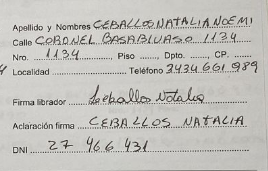 Apellido y Nombres CEBALLOS NATALIA NOEMI
Calle CORONEL BASABILVASO 1134
Nro. 1134 Piso Dpto. CP.
Localidad Teléfono 3434 661 989
Firma librador Ceballos Natalia
Aclaración firma CEBALLOS NATALIA
DNI 27 466 431